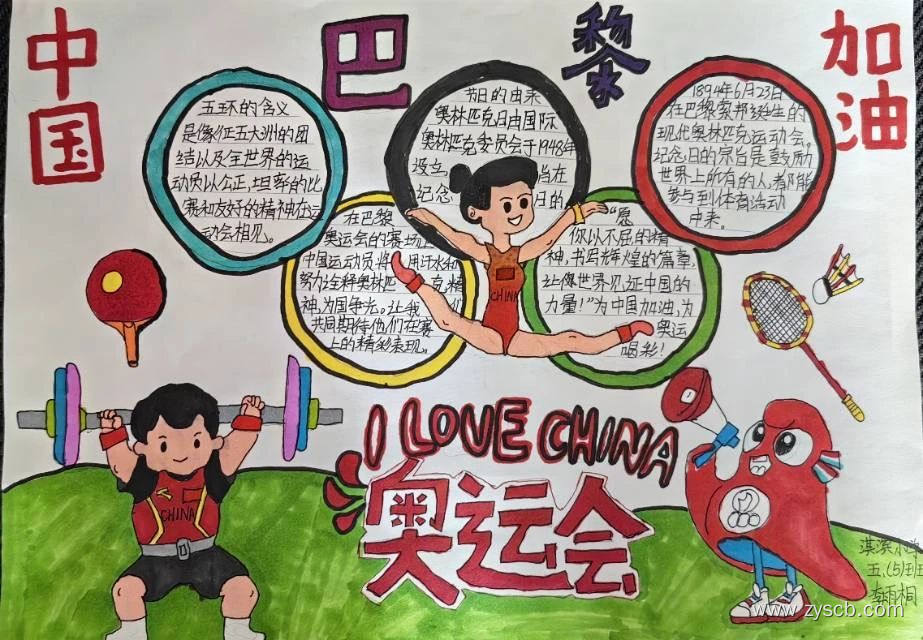 中国
巴黎
加油
五环的含义
是像征五大洲的团
结以及全世界的运
动员以公正,坦荡的比
赛和友好的精神在运
动会相见。
节日的由来
奥林匹克日由国际
奥林匹克委员会于1948年
设立,
旨在
纪念
日的
1894年6月23日
在巴黎索邦诞生的
现代奥林匹克运动会,
纪念日的宗旨是鼓励
世界上所有的人,都能
参与到体育活动
中来。
在巴黎
奥运会的赛场上
中国运动员将用汗水和
努力诠释奥林匹克精
神,为国争光。让我们
共同期待他们在赛
上的精彩表现。
"愿
你以不屈的精
神,书写辉煌的篇章,
让像世界见证中国的
力量!"为中国加油,为
奥运
喝彩!
CHINA
CHINA
I LOVE CHINA
奥运会
淇滨小学
五.(5)班
www.zyscb.com